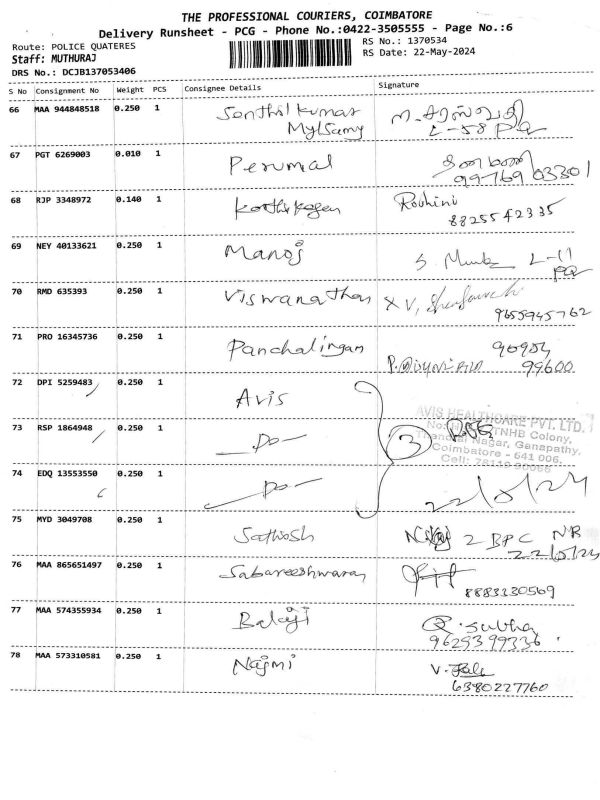 THE PROFESSIONAL COURIERS, COIMBATORE
Delivery Runsheet - PCG - Phone No.:0422-3505555 - Page No.:6
Route: POLICE QUATERES
RS No.: 1370534
Staff: MUTHURAJ
RS Date: 22-May-2024
DRS No.: DCJB137053406
S No Consignment No Weight PCS Consignee Details Signature
66 MAA 944848518 0.250 1 Senthil Kumar
Mylsamy
L-58 PQ
67 PGT 6269003 0.010 1 Perumal
99769 03301
68 RJP 3348972 0.140 1 Karthikeyan Rouhini
88255 42335
69 NEY 40133621 0.250 1 Manoj S. L-11
PQ
70 RMD 635393 0.250 1 Viswanathan X V.
9655945762
71 PRO 16345736 0.250 1 Panchalingan
99600
72 DPI 5259483 0.250 1 Avis
AVIS HEALTHCARE PVT. LTD.
73 RSP 1864948 0.250 1 -Do- 3
TNHB Colony,
Nagar, Ganapathy,
Coimbatore - 641 006.
74 EDQ 13553550 0.250 1 -Do-
22/5/24
75 MYD 3049708 0.250 1 Sathosh 2 BPC NR
22/5/24
76 MAA 865651497 0.250 1 Sabareeshwaran
8883330569
77 MAA 574355934 0.250 1 Balaji R. Subha
9629399336
78 MAA 573310581 0.250 1 Najmi V.
6380227760